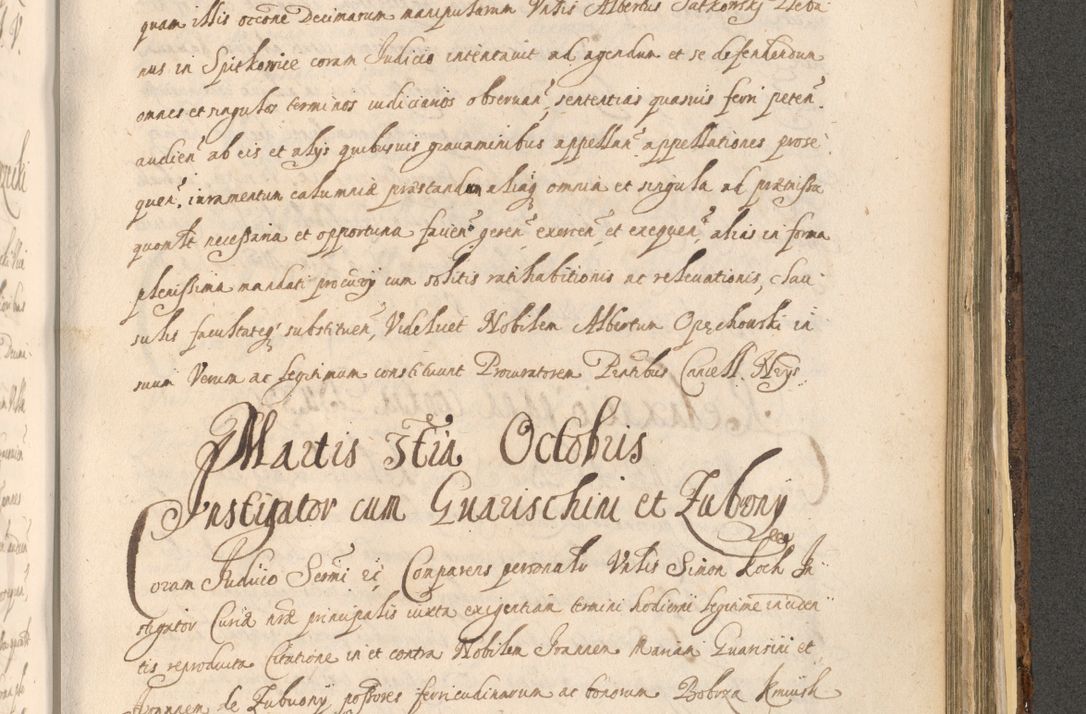 quam illis occõne Decimarum manipularum Vnlis Albertus Jatkowski Pleba
nus in Spitkowice coram Judicio intentavit ad agendum et se defendendum
omnes et singulos terminos iudiciarios observan̑, sententias quasvis ferri peten̑.
audien̑ ab eis et alÿs quibusvis gravaminibus appellan̑ appellationes prose
quen̑, iuramentum calumniæ præstandum aliaq omnia et singula ad præmissa
quomlt necessaria et opportuna facien̑ geren̑ exercen̑ et exequen̑, alias in forma
plenissima mandati procurÿ cum solitis ratihabitionis ac relevationis, clau
sulis facultateq substituen̑, Videlicet Nobilem Albertum Opęchowski in
suum Verum ac legitimum constituunt Procuratorem Pñtibus Cancell. Nrÿs.
Martis 3tia Octobris
Instigator cum Guarischini et Zubony
Coram Judicio Sermi &c Comparens personalr Vnlis Simon Koch In
stigator Curiæ nræ principalis iuxta exigentiam termini hodierni legitime inciden
tis reproducta Citatione in et contra Nobilem Joannem Mariam Guarisini et
Joannem de Zubuony possores ferricudinarum ac bonorum Bobrza